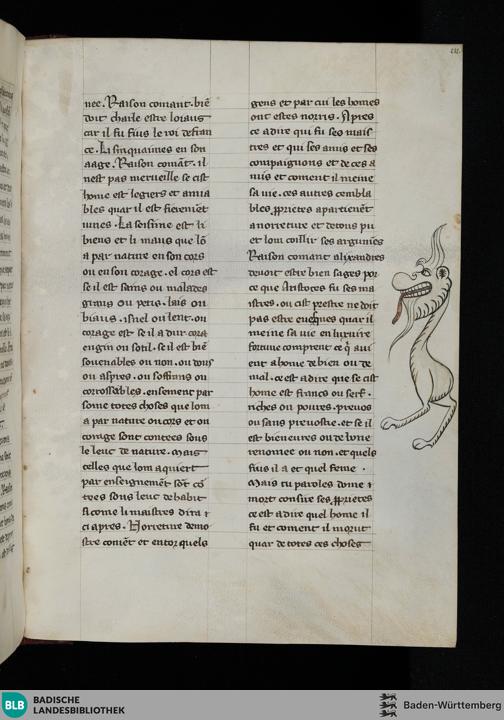 nee. Raison comant. bie᷑
doit charle estre loiaus
car il fu fius le roi de fran
ce. Li sinquaimes en son
aage. Raison comāt. il
nest pas merueille se cist
home est legiers et amia
bles quar il est fierement
iunes. La sesisme est li
biens et li maus que lō
a par nature en son cors
ou en son corage. el cors est
se il est sains ou malades
grans ou petis. lais ou
biaus. isnel ou lent. ou
corage est se il a dur cora
engin ou sotil. se il est biē
souenables ou non. ou dous
ou aspres. ou soffrans ou
corrossables. ensement par
some totes choses que lom
a par nature ou cors et ou
corage sont contees sous
le leuc de nature. Mais
celles que lom aquiert
par enseignement sōt cō
tees sous leuc de habit
si come li maistres dira ⁊
ci apres. Norreture demo
stre comēt et entor quels
gens et par cui les homes
ont estes norris. Apres
ce adire qui fu seo mais
tres et qui ses amis et ses
compaignons et de ces a
mis et coment il meine
sa uie. ces autres cembla
bles ꝓprietes apartienēt
a norreture et de tous pu
et lom coillir ses argumēs
Raison comant alixandres
deuoit estre bien sages por
ce que Aristotes fu ses ma
istres. ou cist prestre ne doit
pas estre euesques quar il
meine sa uie en luxure
fortune comprent ce q̄ aui
ent a home de bien ou de
mal. ce est a dire que se cist
home est francs ou serf.
riches ou poures. preuos
ou sans preuostie. et se il
est bieneures ou de bone
renomee ou non. et quels
fius il a et quel feme.
Mais tu paroles dome ⁊
mort consire ses ꝓprietes
ce est a dire quel home il
fu et coment il morut
quar de totes ces choses
BLB
BADISCHE
LANDESBIBLIOTHEK
Baden-Württemberg